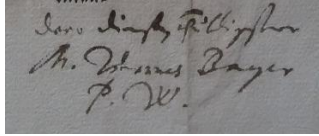 dero dienstwilligster
M. Thomas Bayer
P. W.